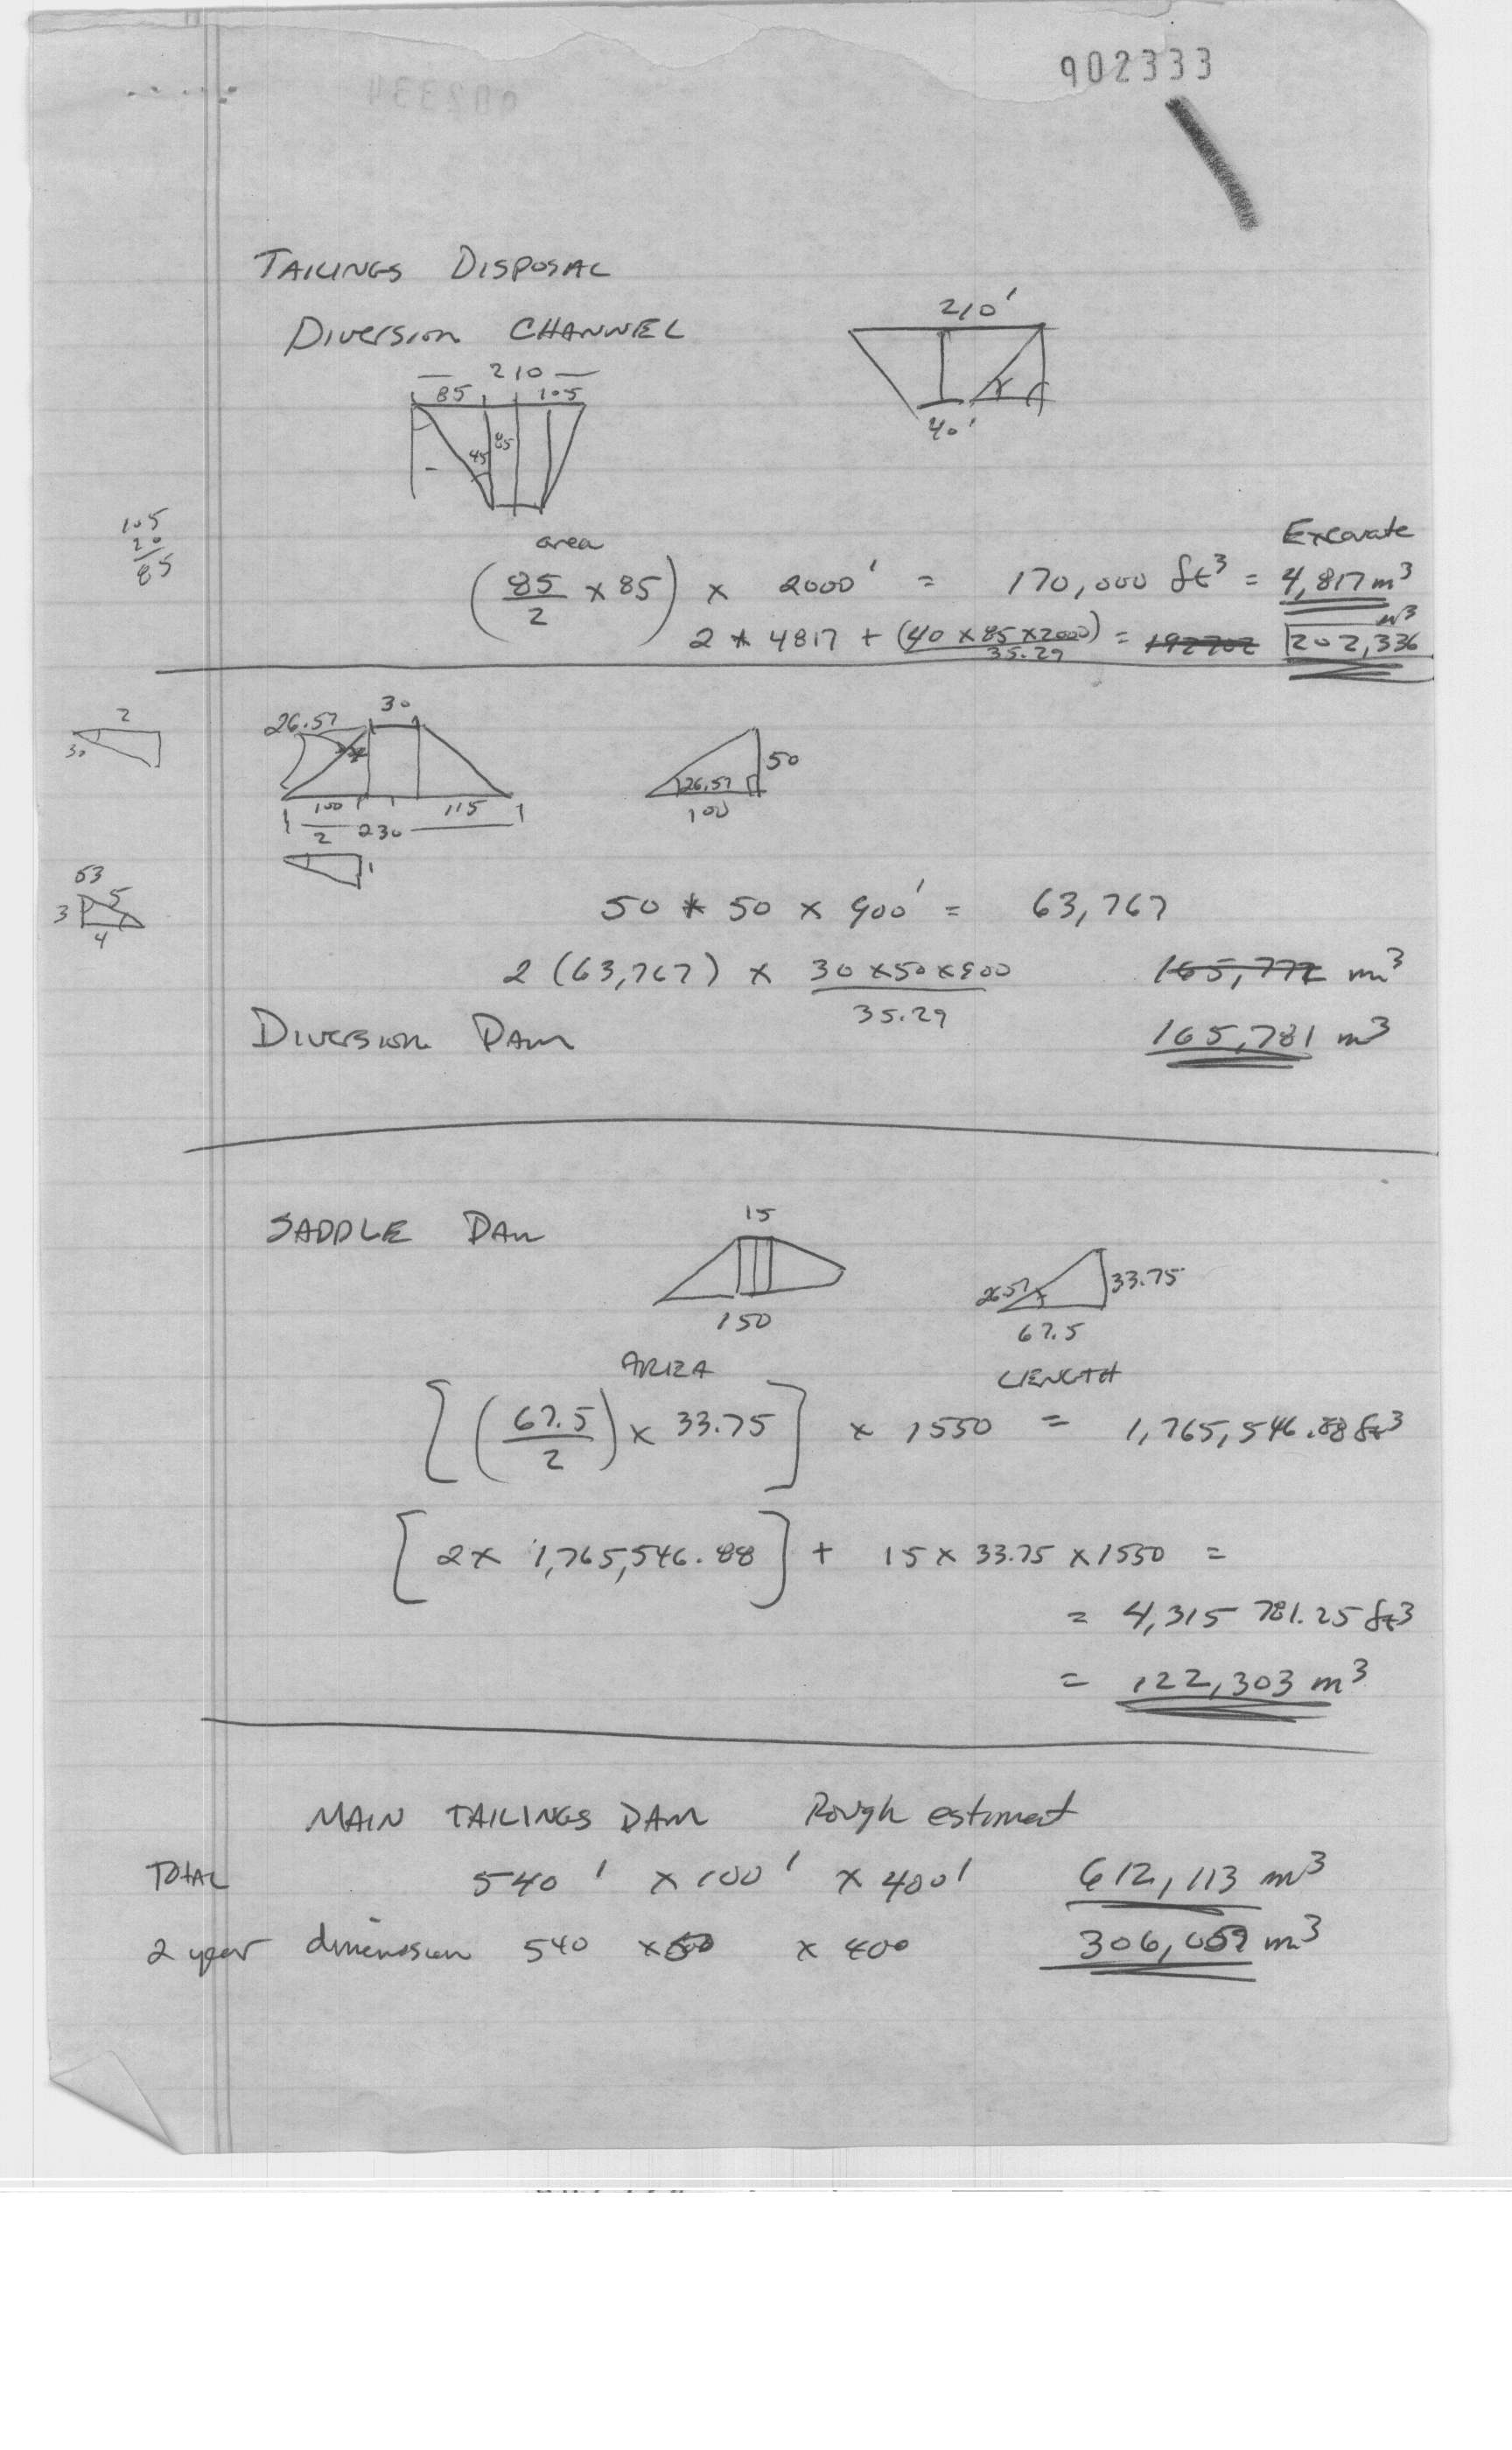 902333
TAILINGS DISPOSAL
DIVERSION CHANNEL
210'
40'
— 210 —
85 105
85
45
105
20
85
area
Excavate
(85/2 × 85) × 2000' = 170,000 ft³ = 4,817 m³
2 * 4817 + (40 × 85 × 2000)/35.29 = 192702 202,336 m³
2
30
26.57 30
100 115
230
2
1
50
26.57
100
53
5
3
4
50 * 50 × 900' = 63,767
2 (63,767) × 30 × 50 × 900 / 35.29 165,772 m³
DIVERSION DAM 165,781 m³
SADDLE DAM
15
150
26.57 33.75
67.5
AREA LENGTH
[(67.5/2) × 33.75] × 1550 = 1,765,546.88 ft³
[2 × 1,765,546.88] + 15 × 33.75 × 1550 =
= 4,315 781.25 ft³
= 122,303 m³
MAIN TAILINGS DAM Rough estiment
TOTAL 540' × 100' × 400' 612,113 m³
2 year dimension 540 × × 400 306,059 m³